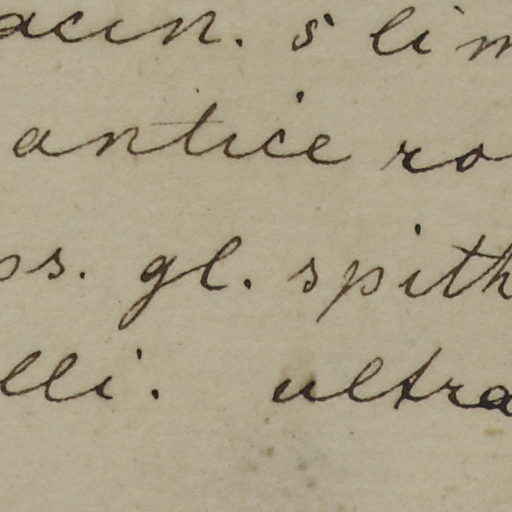 acin. s lim
antice ro
ps. gl. spith
lli. ultra